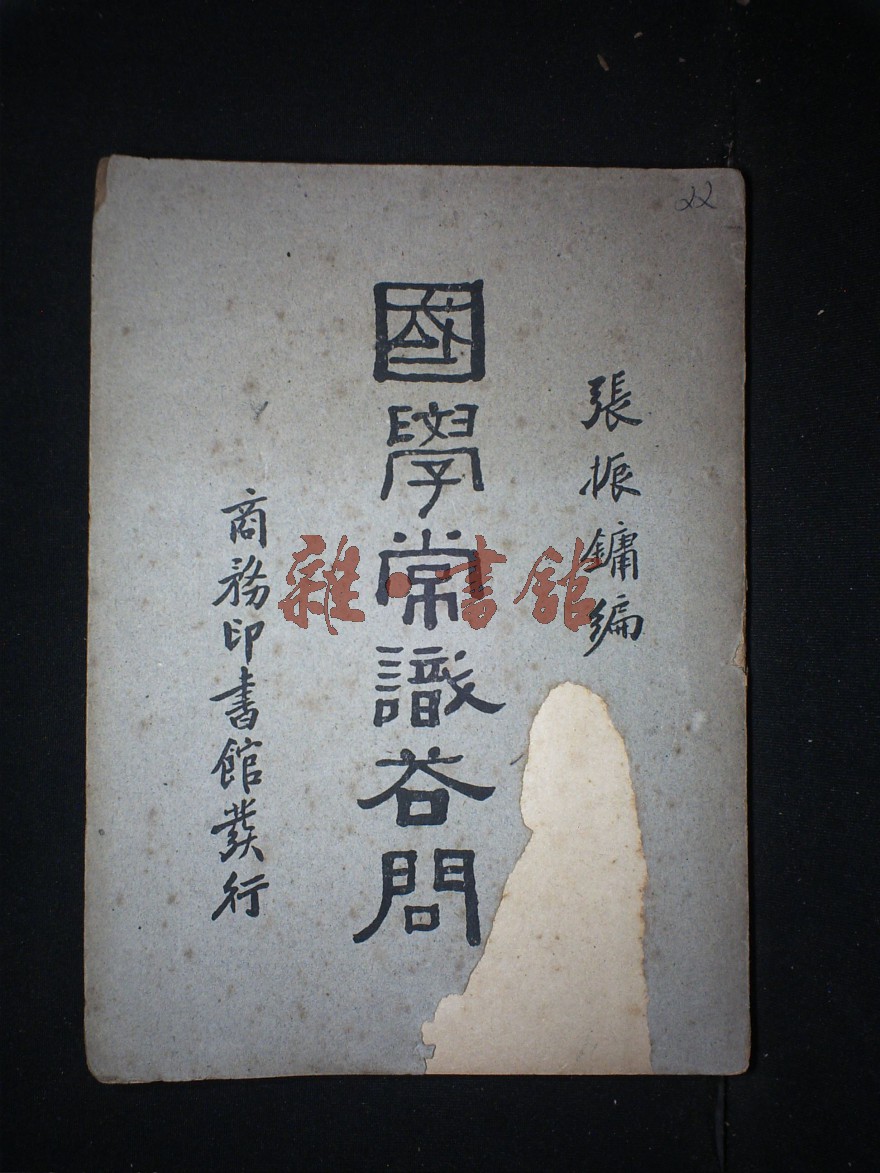 22
張振鏞編
國學常識荅問
商務印書館發行
雜·書館